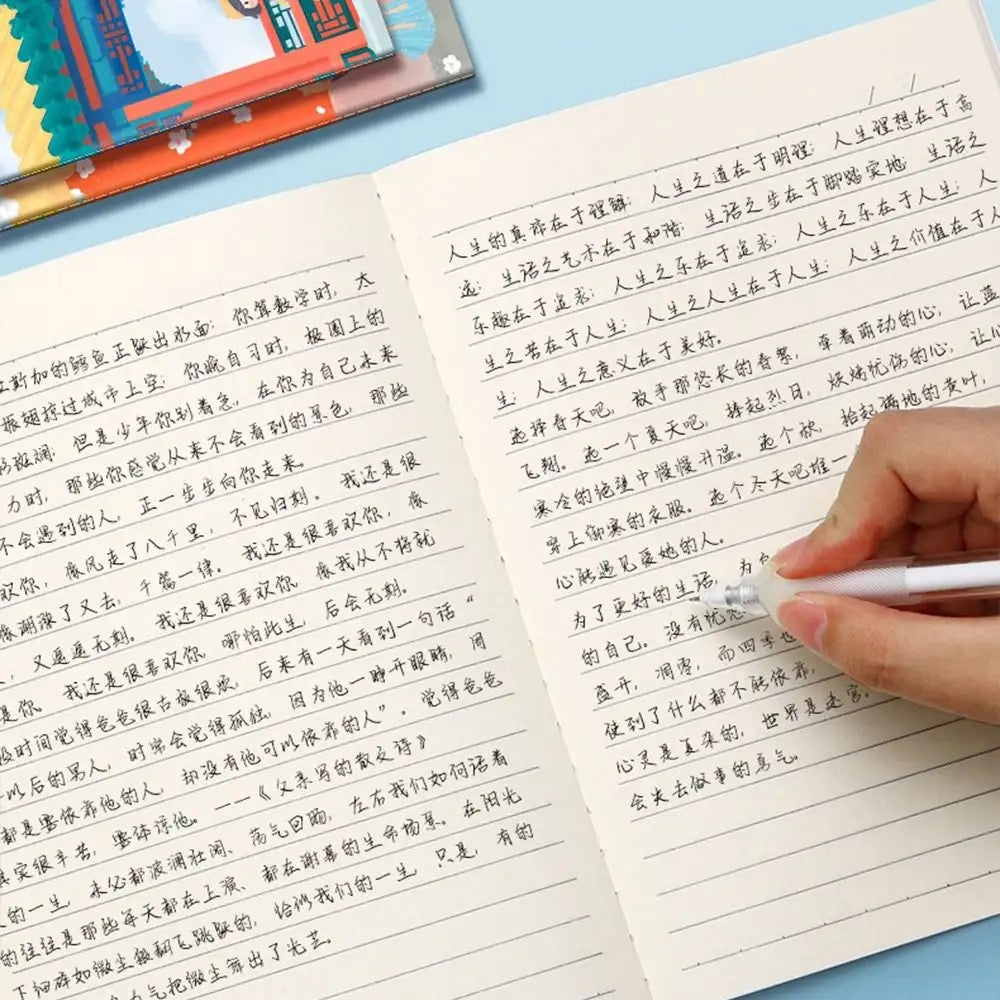 斯加的鳕鱼正跃出水面；你算数学时，太
振翅掠过城市上空；你晚自习时，极圈上的
斑斓；但是少年你别着急，在你为自己未来
力时，那些你感觉从来不会看到的景色，那些
不会遇到的人，正一步步向你走来。
欢你，像风走了八千里，不见归期。我还是很
像潮涨了又去，千篇一律。我还是很喜欢你，像
，又遥遥无期。我还是很喜欢你，像我从不将就
是你。我还是很喜欢你，哪怕此生，后会无期。
段时间觉得爸爸很古板很凶，后来有一天看到一句话“
以后的男人，时常会觉得孤独，因为他一睁开眼睛，周
都是要依靠他的人，却没有他可以依靠的人”。觉得爸爸
其实很辛苦，要体谅他。——《父亲写的散文诗》
的一生，未必都波澜壮阔、荡气回肠，左右我们如何活着
的往往是那些每天都在上演、都在谢幕的生命场景。在阳光
下细碎如微尘般翻飞跳跃的，恰似我们的一生，只是，有的
力气把微尘舞出了光芒。
人生的真谛在于理解；人生之道在于明理；人生理想在于高
远；生活之艺术在于和谐；生活之步在于脚踏实地；生活之
乐趣在于追求；人生之乐在于追求；人生之乐在于人生；人
生之苦在于人生；人生之人生在于人生；人生之价值在于人
生；人生之意义在于美好。
选择春天吧，放手那悠长的香祭，牵着萌动的心，让蓝
飞翔。选一个夏天吧，捧起烈日，烘烤忧伤的心，让心
寒冷的绝望中慢慢升温。选个秋，拾起满地的黄叶，
穿上御寒的衣服。选个冬天吧堆一
心能遇见爱她的人。
为了更好的生活，为
的自己。没有忧
盛开，凋零，而四季也
使到了什么都不能依靠，
心灵是复杂的，世界是迷宫。
会失去做事的勇气。